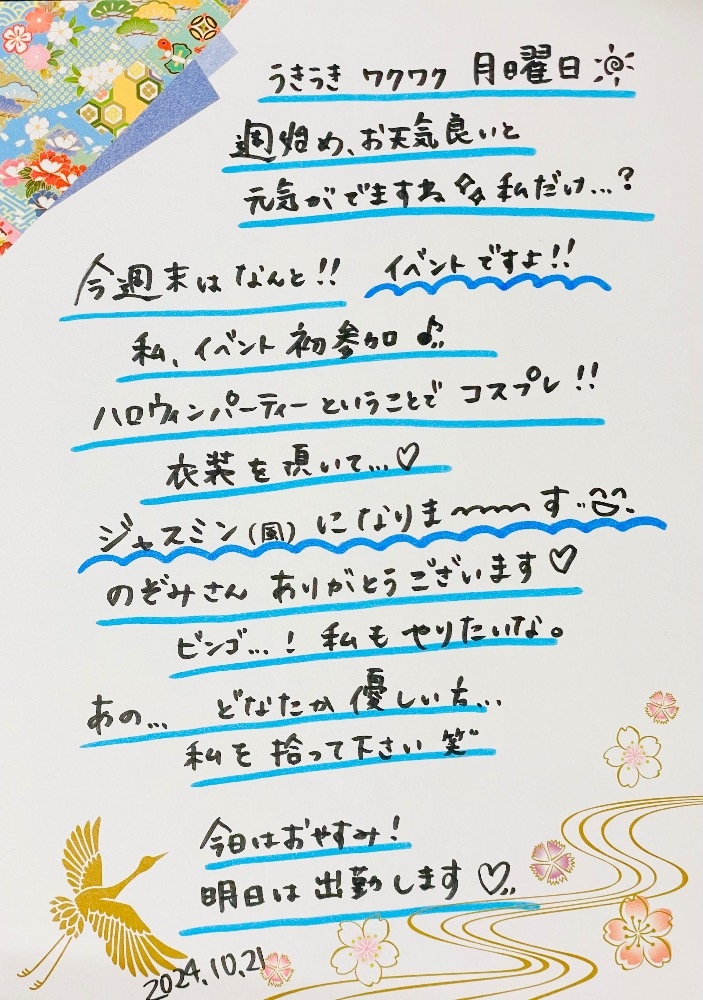 うきうき ワクワク 月曜日
週始め、お天気良いと
元気がでますね 私だけ…?
今週末は なんと!! イベントですよ!!
私、イベント 初参加♪
ハロウィンパーティーということで コスプレ!!
衣装を頂いて…♡
ジャスミン(風)になりま〜〜〜す
のぞみさん ありがとうございます♡
ビンゴ…! 私も やりたいな。
あの… どなたか 優しい方…
私を 拾って下さい 笑
今日はおやすみ!
明日は 出勤します♡
2024.10.21